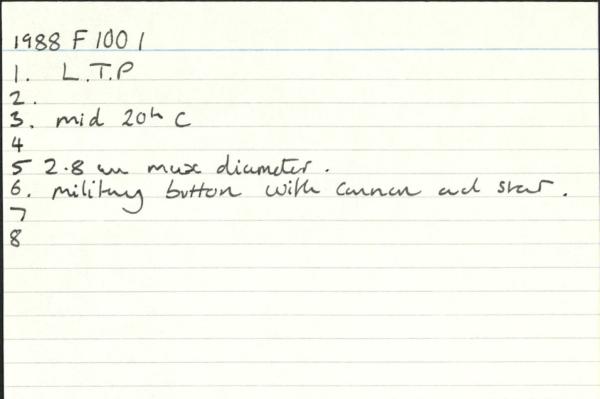 1988 F 100 1
1. L.T.P
2.
3. mid 20th C
4
5 2.8 cm max diameter.
6. military button with cannon and star.
7
8